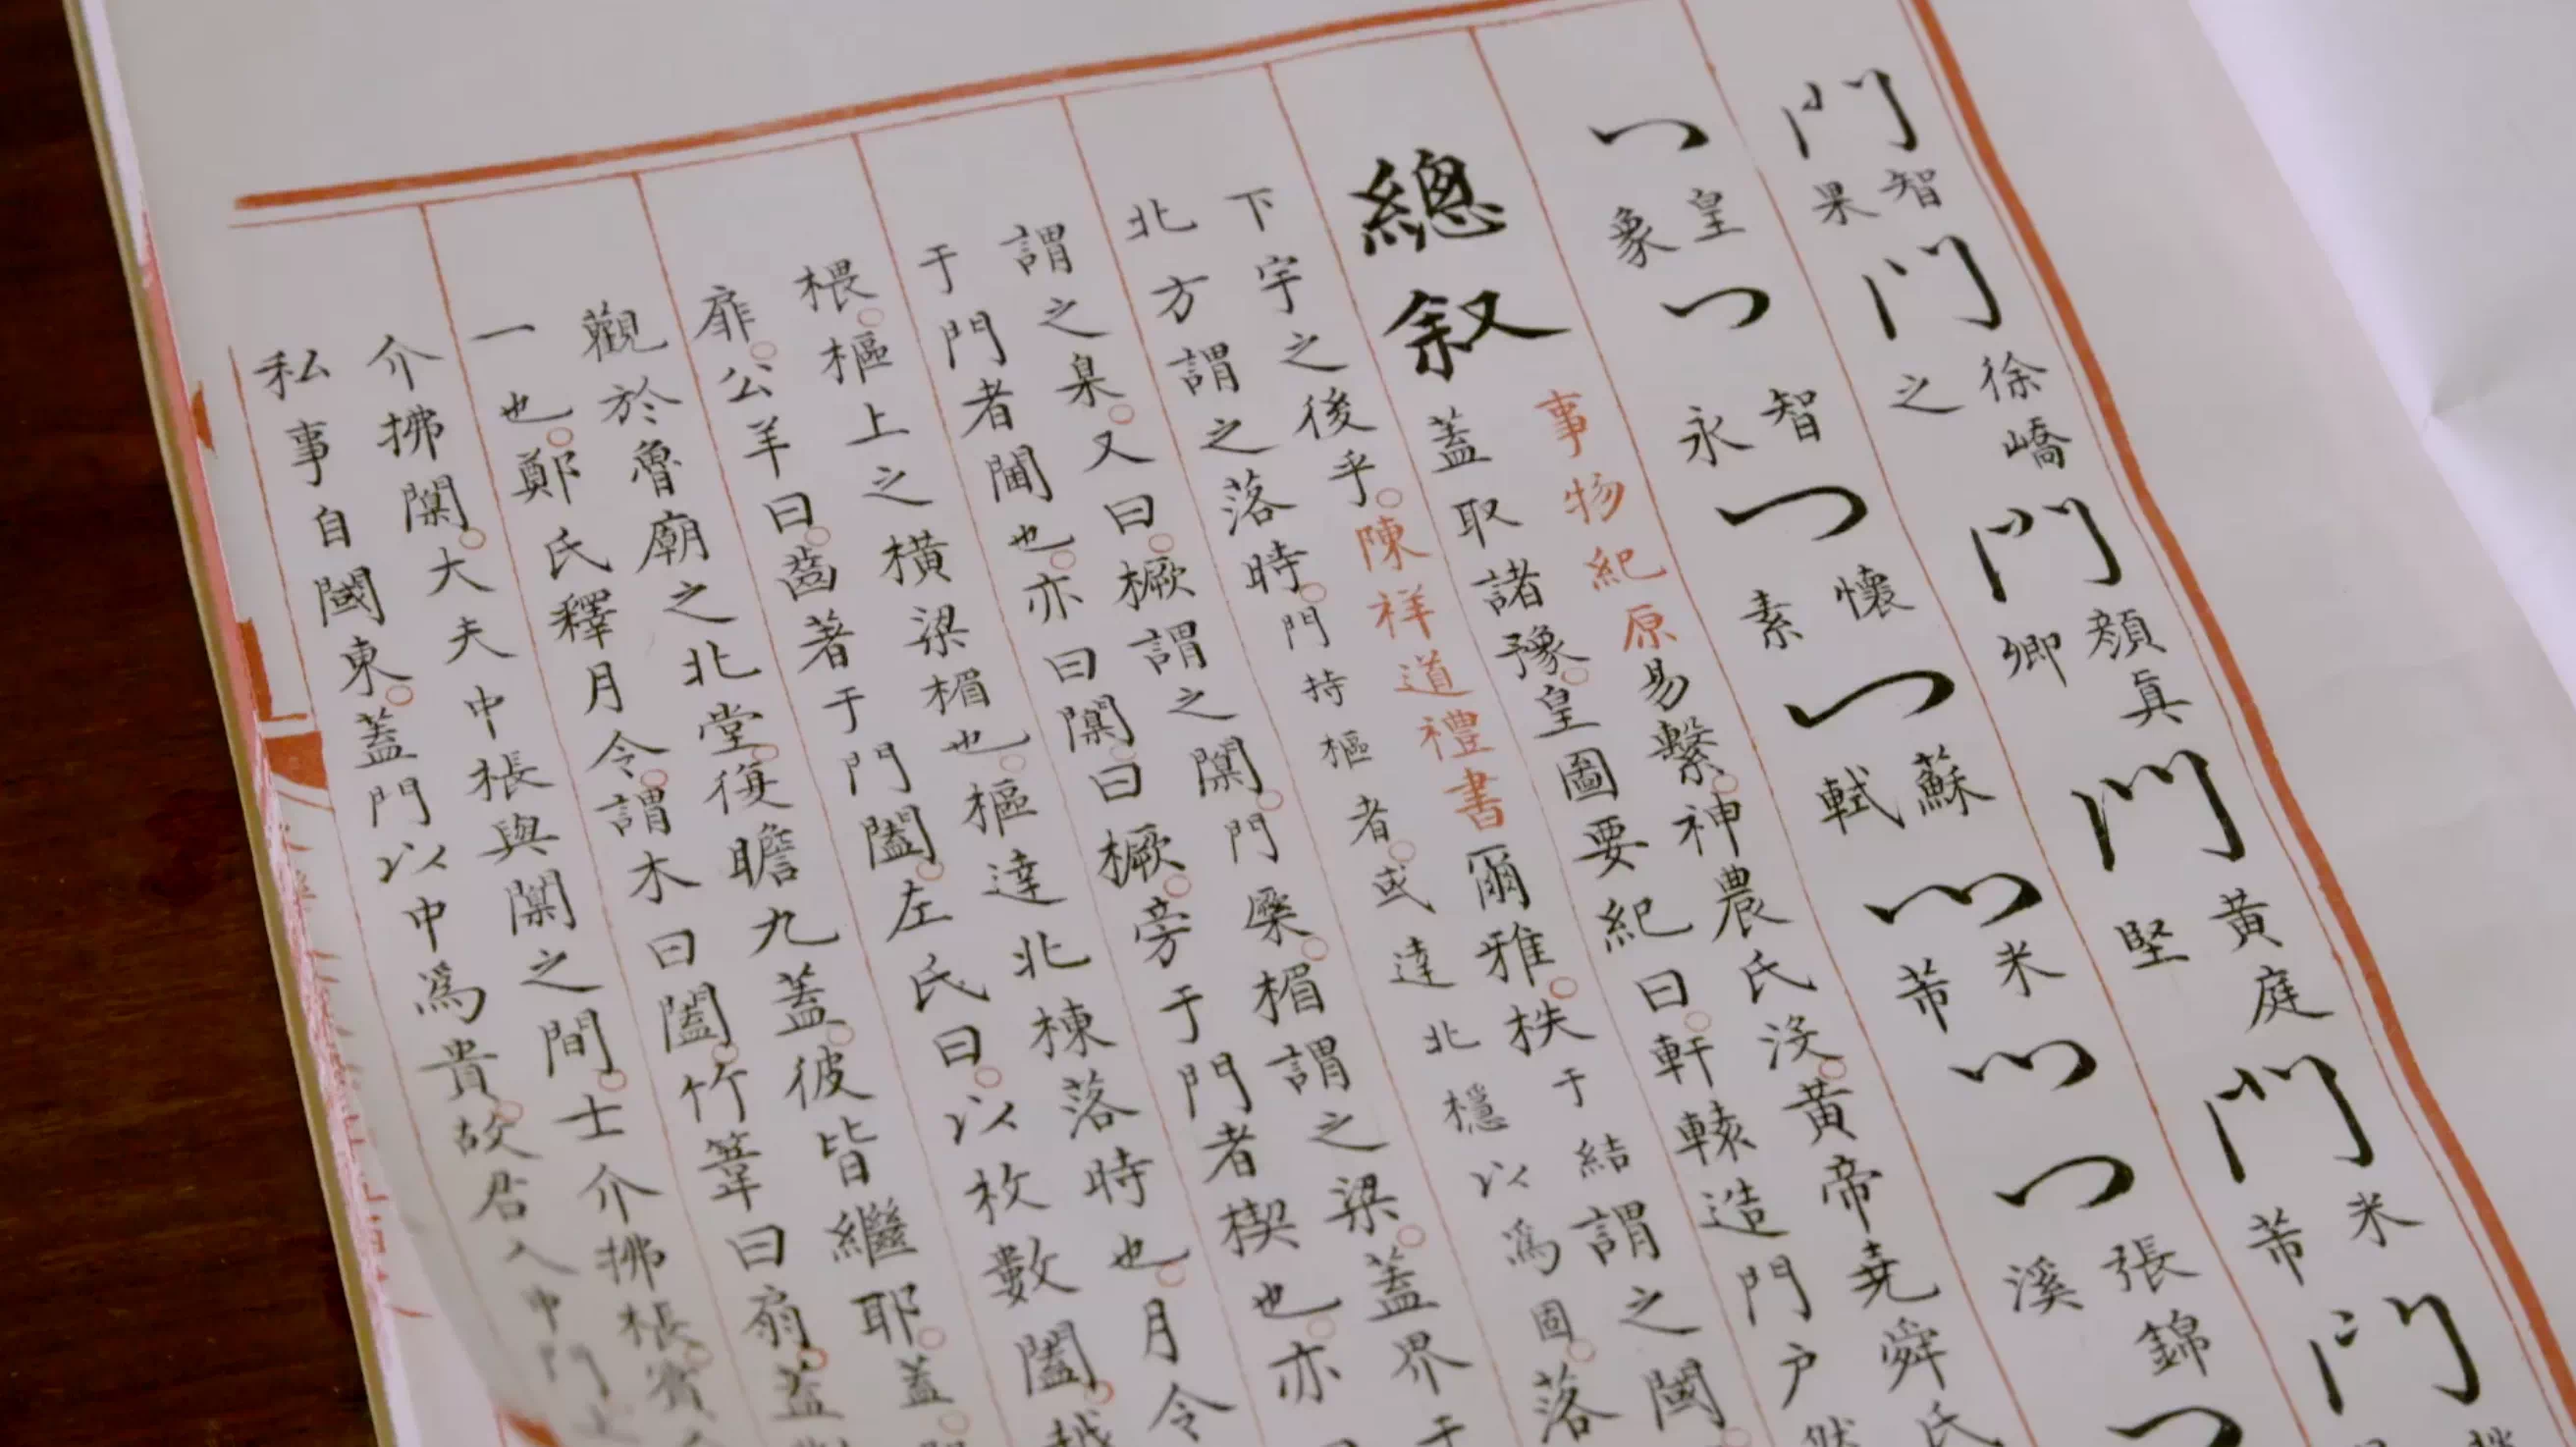 門智果門徐嶠之門顏真卿門黃庭堅門米芾門
門皇象門智永門懷素門蘇軾門米芾門門張錦溪門
總叙
事物紀原易繫。神農氏沒。黃帝堯舜氏
蓋取諸豫。皇圖要紀曰。軒轅造門户然
下宇之後乎。陳祥道禮書爾雅。柣于結謂之閾。
北方謂之落時。門持樞者。或達北穩以爲固。落
謂之臬。又曰。橛謂之闑。門橜。楣謂之梁。蓋界于
于門者閫也。亦曰闑。曰橛。旁于門者楔也。亦曰
椳。樞上之橫梁楣也。樞達北棟落時也。月令
扉。公羊曰。齒著于門闔。左氏曰。以枚數闔。越
觀於魯廟之北堂。復瞻九蓋。彼皆繼耶。蓋
一也。鄭氏釋月令。謂木曰闔。竹葦曰扇。蓋
介拂闑。大夫中棖與闑之間。士介拂棖。賓
私事自閾東。蓋門以中爲貴。故君入中門